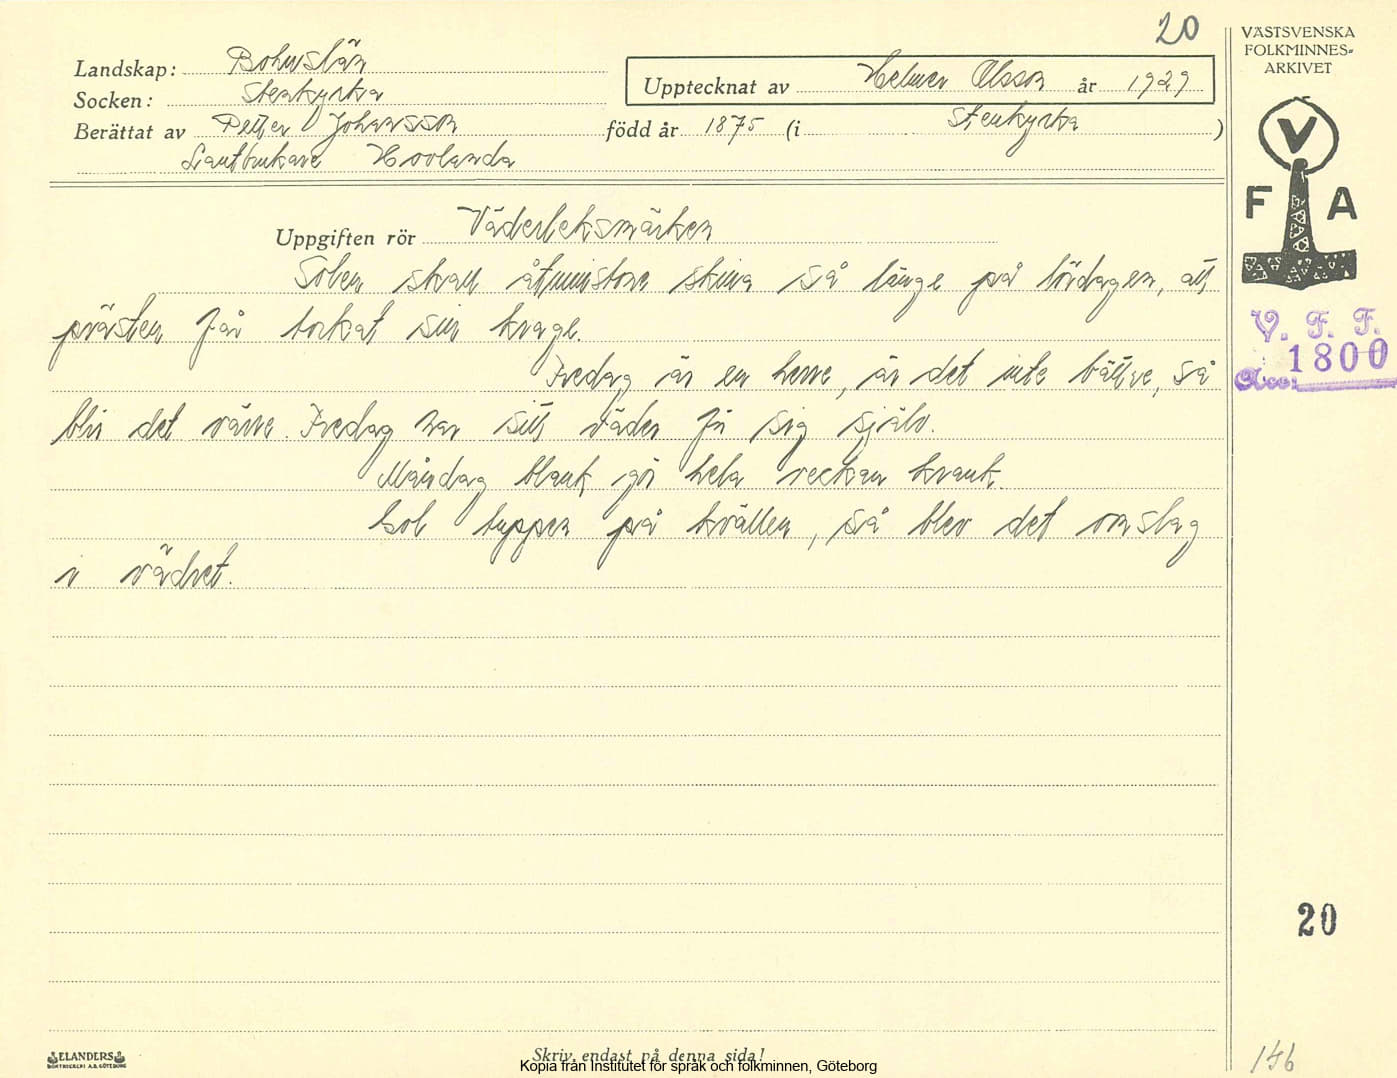 20
VÄSTSVENSKA
FOLKMINNES-
ARKIVET
Landskap: Bohuslän
Socken: Stenkyrka
Upptecknat av Helmer Olsson år 1929
Berättat av Petter Johansson född år 1875 (i Stenkyrka )
Lantbrukare Hovlanda
V
F A
Uppgiften rör Väderleksmärken
Solen skall åtminstone skina så länge på lördagen, att
prästen får torkat sin krage.
V. F. F.
Acc: 1800
Fredag är en herre, är det inte bättre, så
blir det värre. Fredag har sitt väder för sig själv.
Måndag blank gör hela veckan krank.
Gol tuppen på kvällen, så blev det omslag
i vädret.
20
ELANDERS
BOKTRYCKERI A.B. GÖTEBORG
Skriv endast på denna sida!
Kopia från Institutet för språk och folkminnen, Göteborg
146